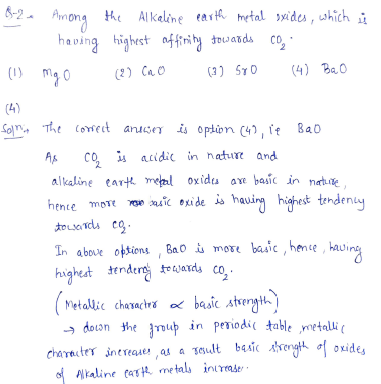 Q-2- Among the Alkaline earth metal oxides, which is
having highest affinity towards CO₂.
(1) MgO (2) CaO (3) SrO (4) BaO
(4)
Solⁿ:- The correct answer is option (4), i.e BaO
As CO₂ is acidic in nature and
alkaline earth metal oxides are basic in nature,
hence more basic oxide is having highest tendency
towards CO₂.
In above options, BaO is more basic, hence, having
highest tendency towards CO₂.
(Metallic character ∝ basic strength)
→ down the group in periodic table, metallic
character increases, as a result basic strength of oxides
of Alkaline earth metals increase.